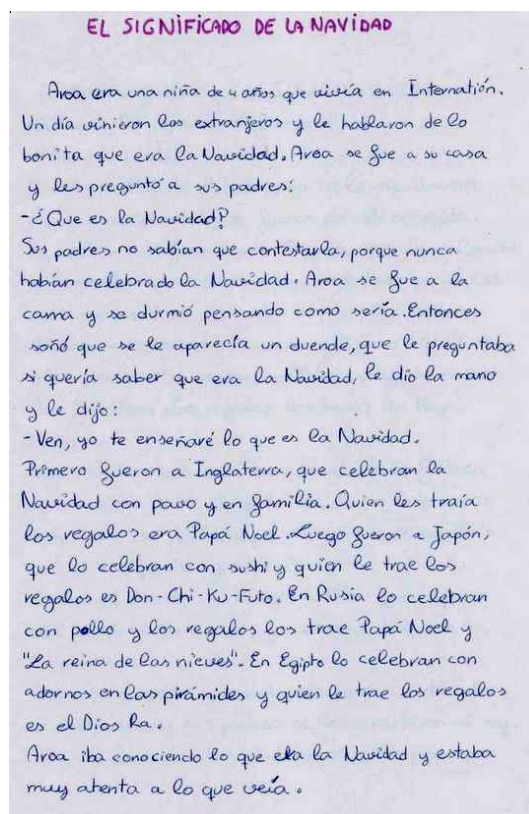 EL SIGNIFICADO DE LA NAVIDAD
Aroa era una niña de 4 años que vivía en Internatión.
Un día vinieron los extranjeros y le hablaron de lo
bonita que era la Navidad. Aroa se fue a su casa
y les preguntó a sus padres:
-¿Que es la Navidad?
Sus padres no sabían que contestarla, porque nunca
habían celebrado la Navidad. Aroa se fue a la
cama y se durmió pensando como sería. Entonces
soñó que se le aparecía un duende, que le preguntaba
si quería saber que era la Navidad, le dio la mano
y le dijo:
-Ven, yo te enseñaré lo que es la Navidad.
Primero fueron a Inglaterra, que celebran la
Navidad con pavo y en familia. Quien les traía
los regalos era Papá Noel. Luego fueron a Japón,
que lo celebran con sushi y quien le trae los
regalos es Don-Chi-Ku-Futo. En Rusia lo celebran
con pollo y los regalos los trae Papá Noel y
"La reina de las nieves". En Egipto lo celebran con
adornos en las pirámides y quien le trae los regalos
es el Dios Ra.
Aroa iba conociendo lo que era la Navidad y estaba
muy atenta a lo que veía.